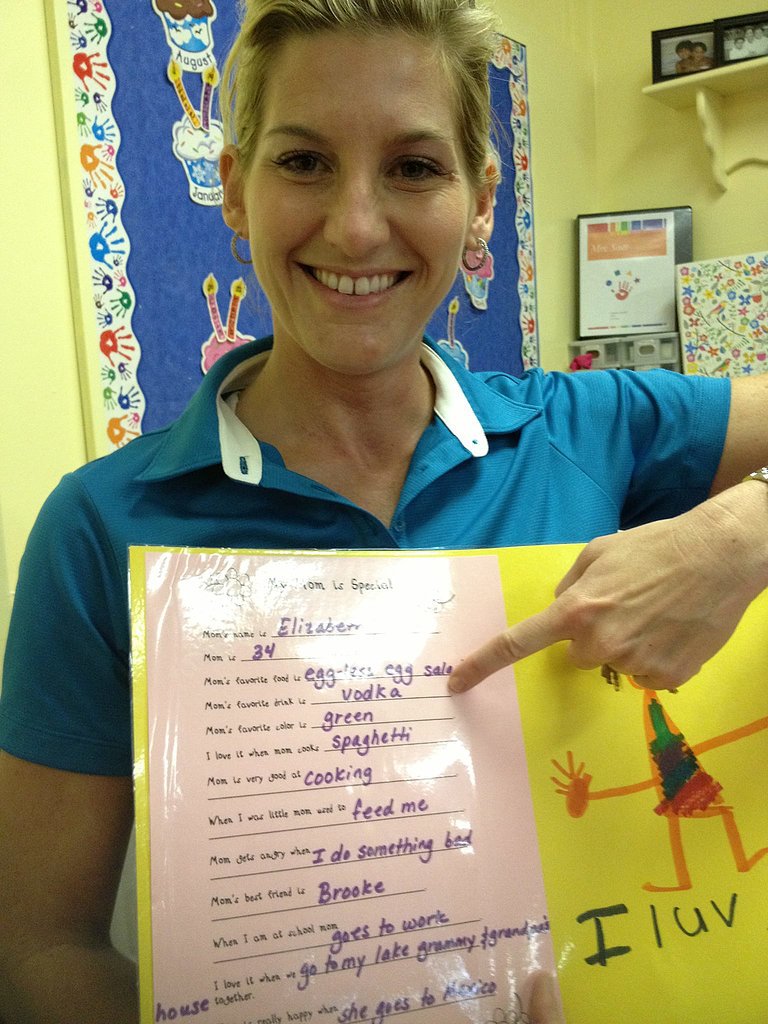 August
January
My Mom is Special
Mom's name is Elizabeth
Mom is 34
Mom's favorite food is egg-less egg sala
Mom's favorite drink is vodka
Mom's favorite color is green
I love it when mom cooks spaghetti
Mom is very good at cooking
When I was little mom used to feed me
Mom gets angry when I do something bad
Mom's best friend is Brooke
When I am at school mom goes to work
I love it when we go to my lake grammy & grandpa's
house together.
is really happy when she goes to Mexico
I luv